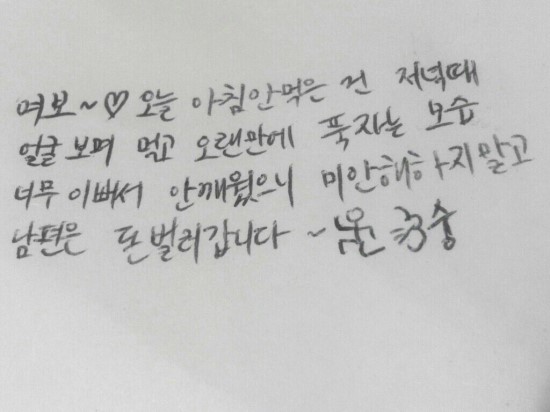 여보~♡ 오늘 아침안먹은 건 저녁때
얼굴보며 먹고 오랜만에 푹자는 모습
너무이뻐서 안깨웠으니 미안해하지말고
남편은 돈벌러갑니다~